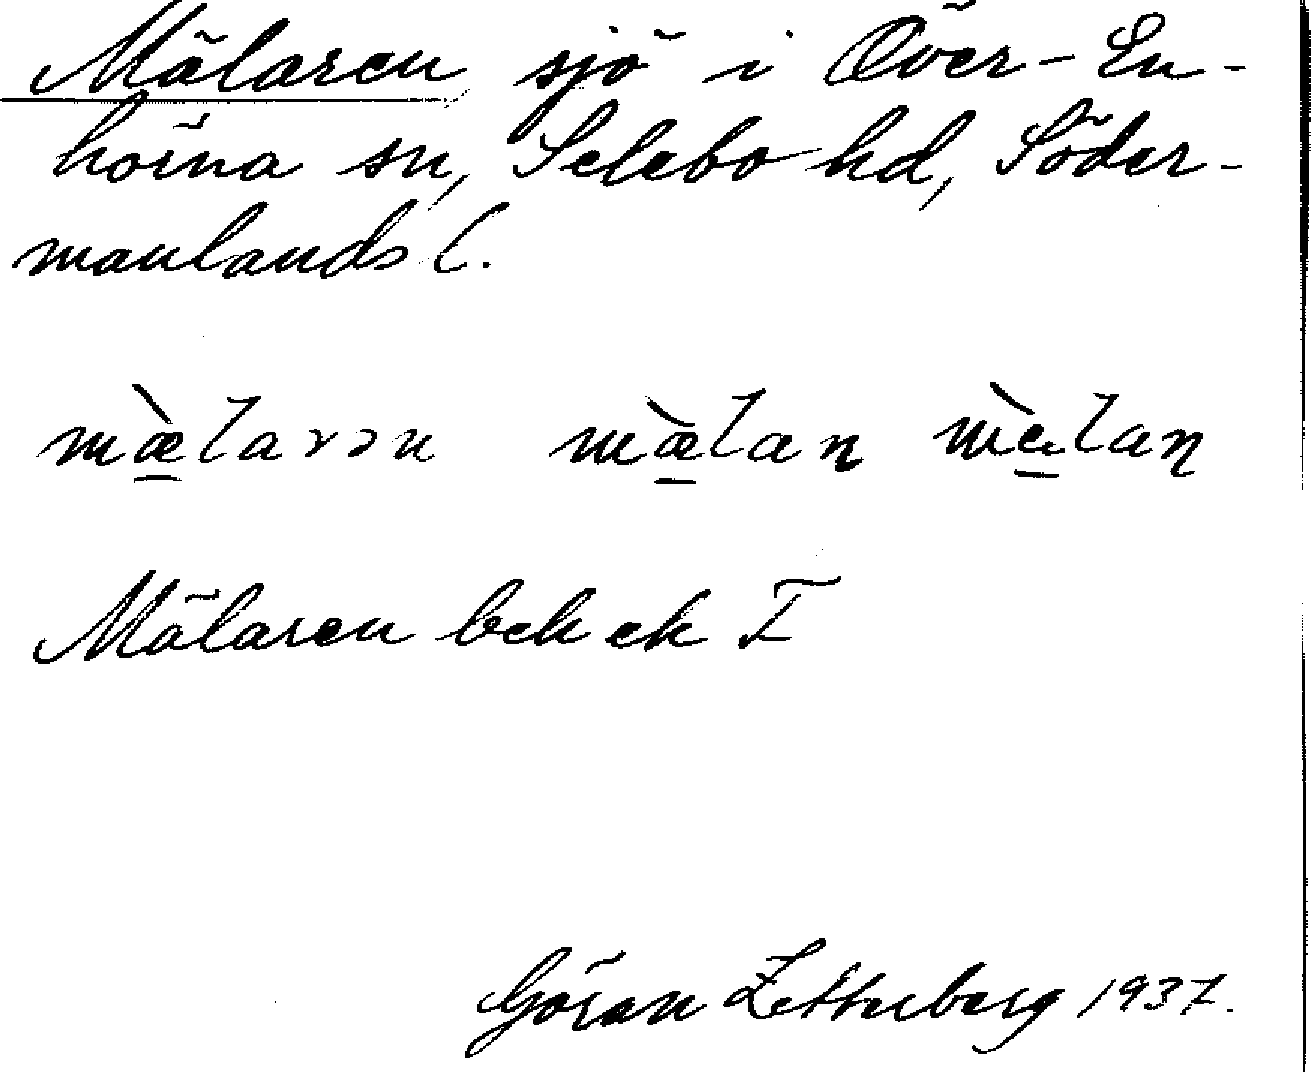 Mälaren sjö i Över-En-
hörna sn, Selebo hd, Söder-
manlands l.
mæ̀larən mæ̀laɳ mæ̀laɳ
Mälaren bek ek I
Göran Zetterberg 1937.